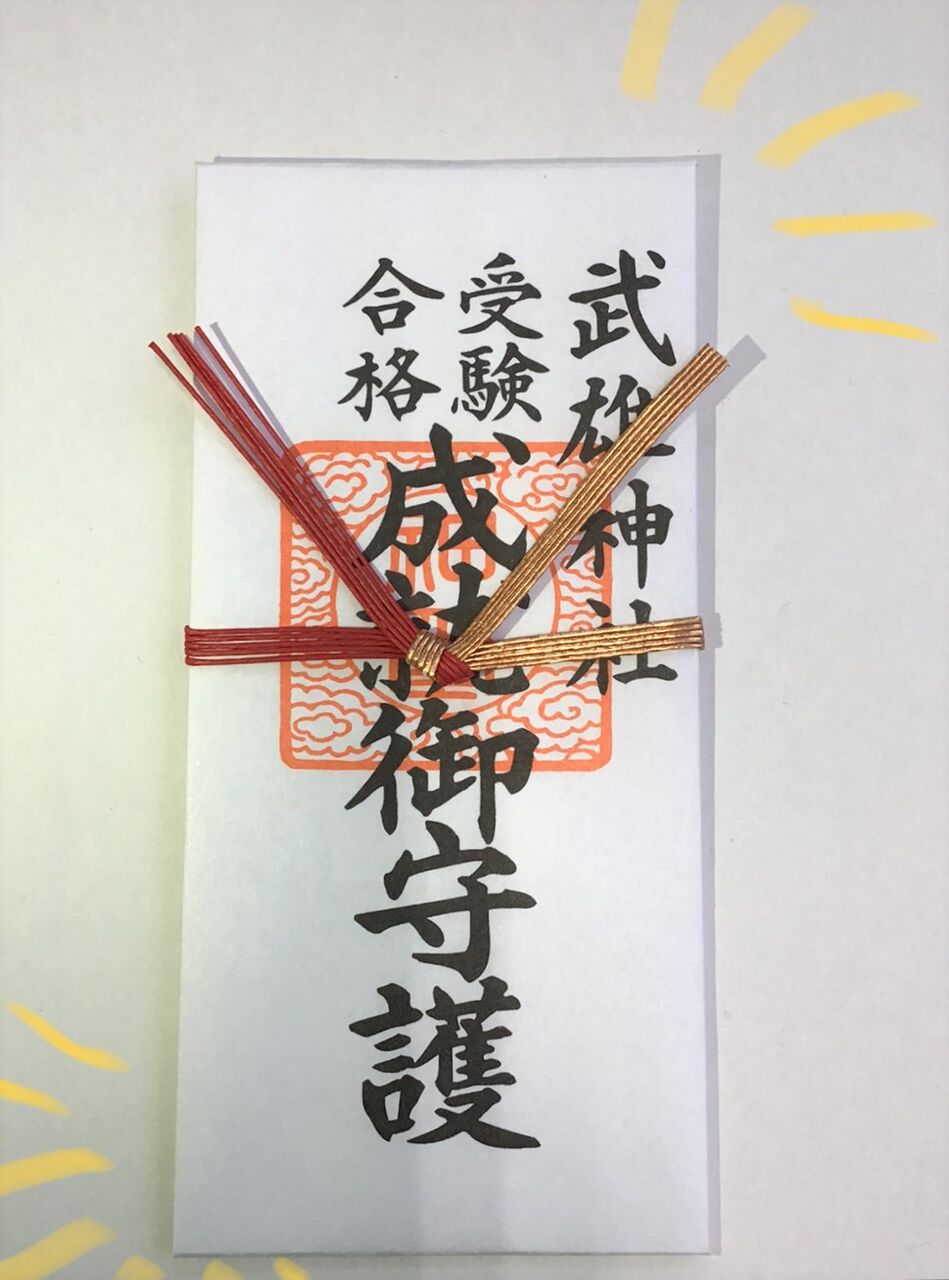 武雄神社
受験
合格
成就御守護